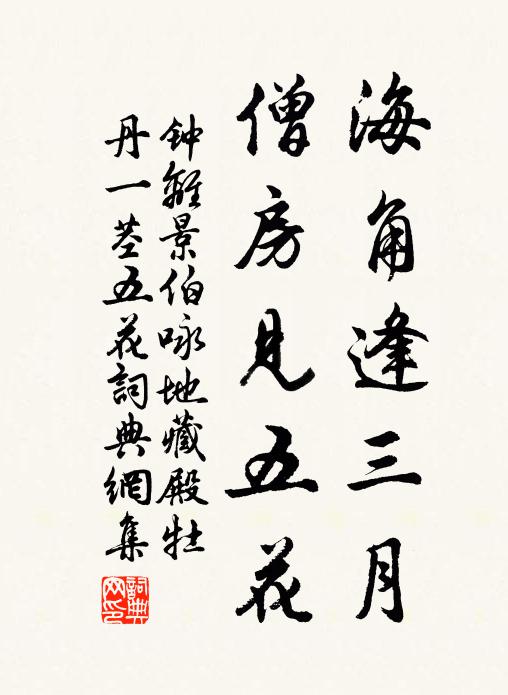 海角逢三月
僧房見五花
钟離景伯咏地藏殿牡
丹一茎五花詞典網集
詞典网印